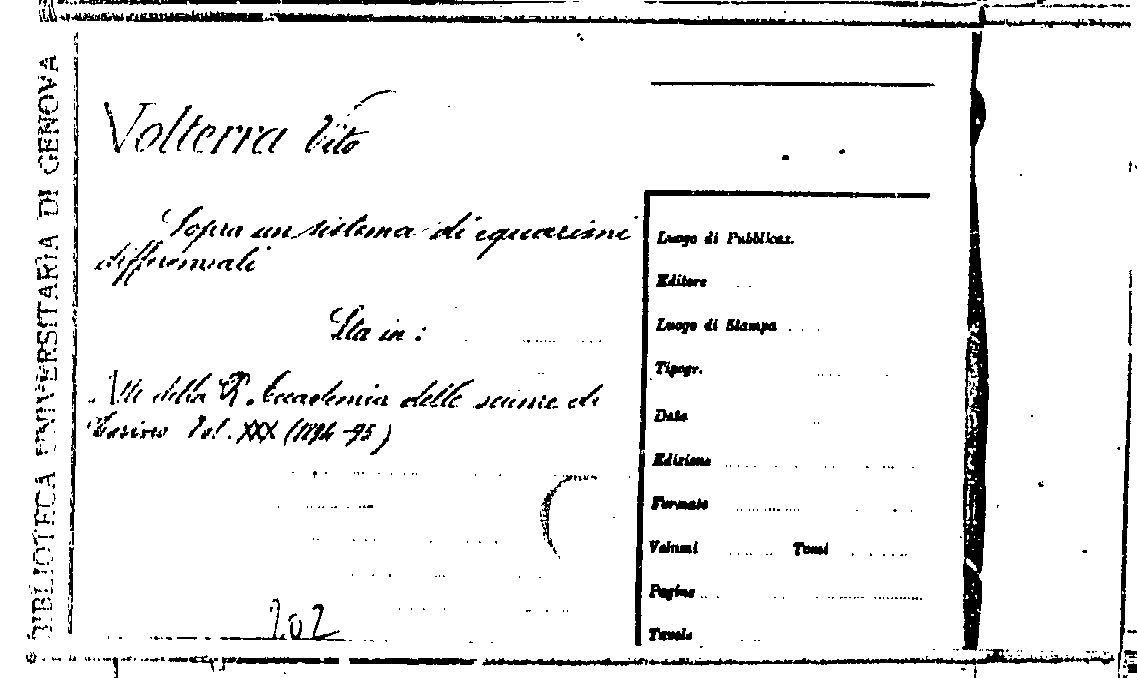 BIBLIOTECA UNIVERSITARIA DI GENOVA
Volterra Vito
Sopra un sistema di equazioni
differenziali
Sta in:
Atti della R. Accademia delle scienze di
Torino Vol. XXX (1894-95)
202
Luogo di Pubblicaz.
Editore
Luogo di Stampa
Tipogr.
Data
Edizione
Formato
Volumi Tomi
Pagine
Tavole